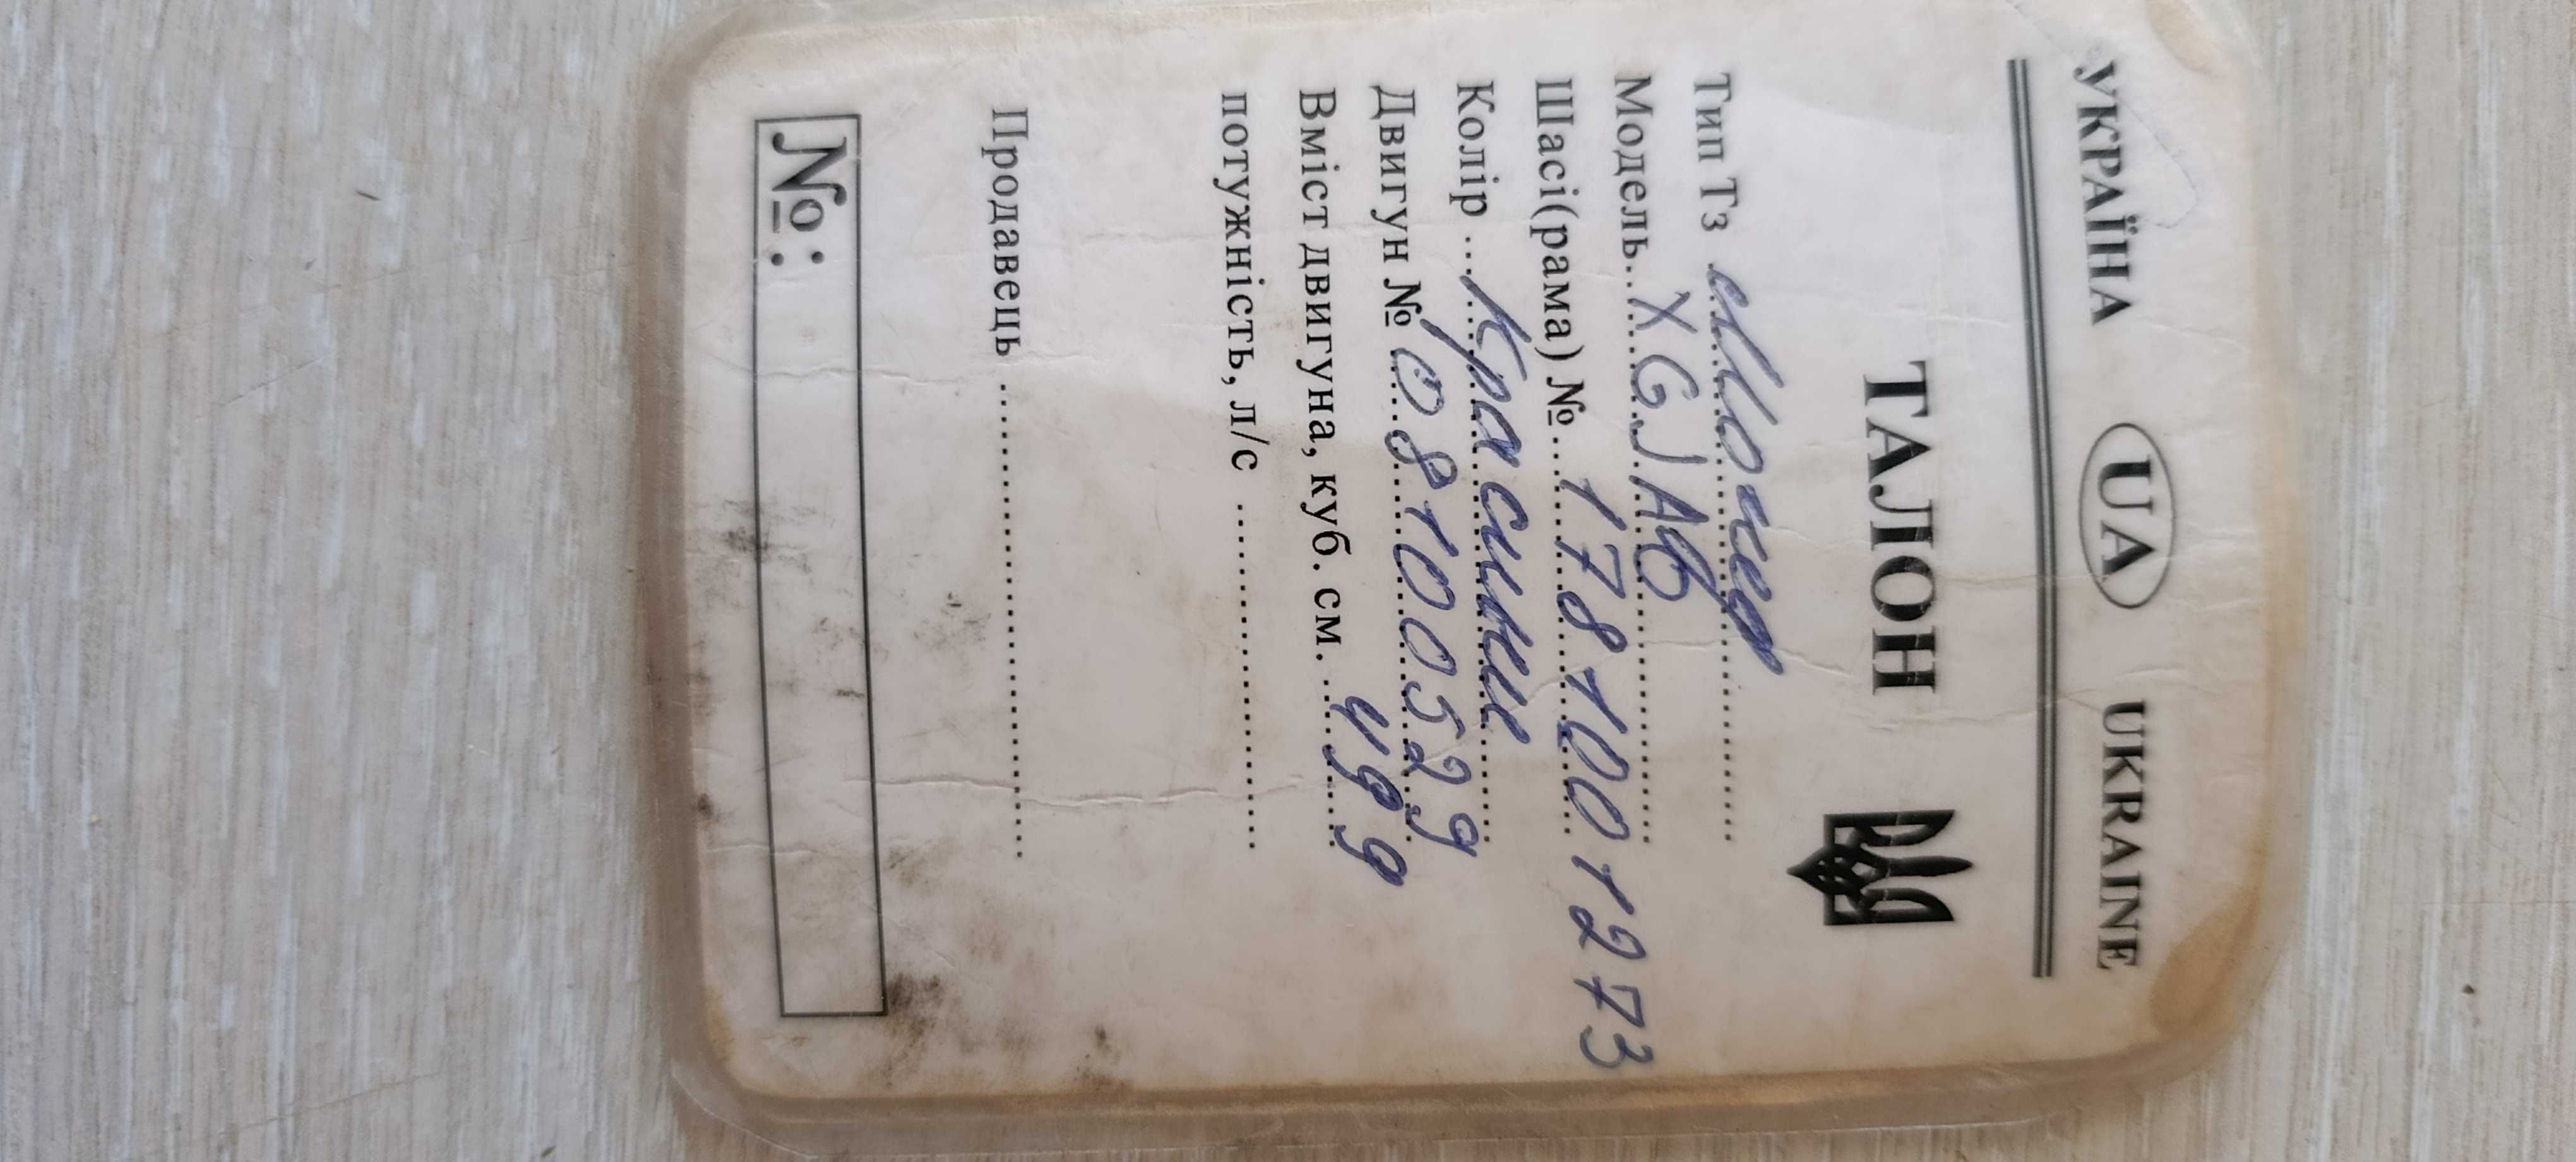 УКРАЇНА UA UKRAINE
ТАЛОН
Тип Тз Мопед
Модель XGJAB
Шасі(рама) № 1781001273
Колір Кра синий
Двигун № 08100529
Вміст двигуна, куб. см. 499
потужність, л/с
Продавець
№: